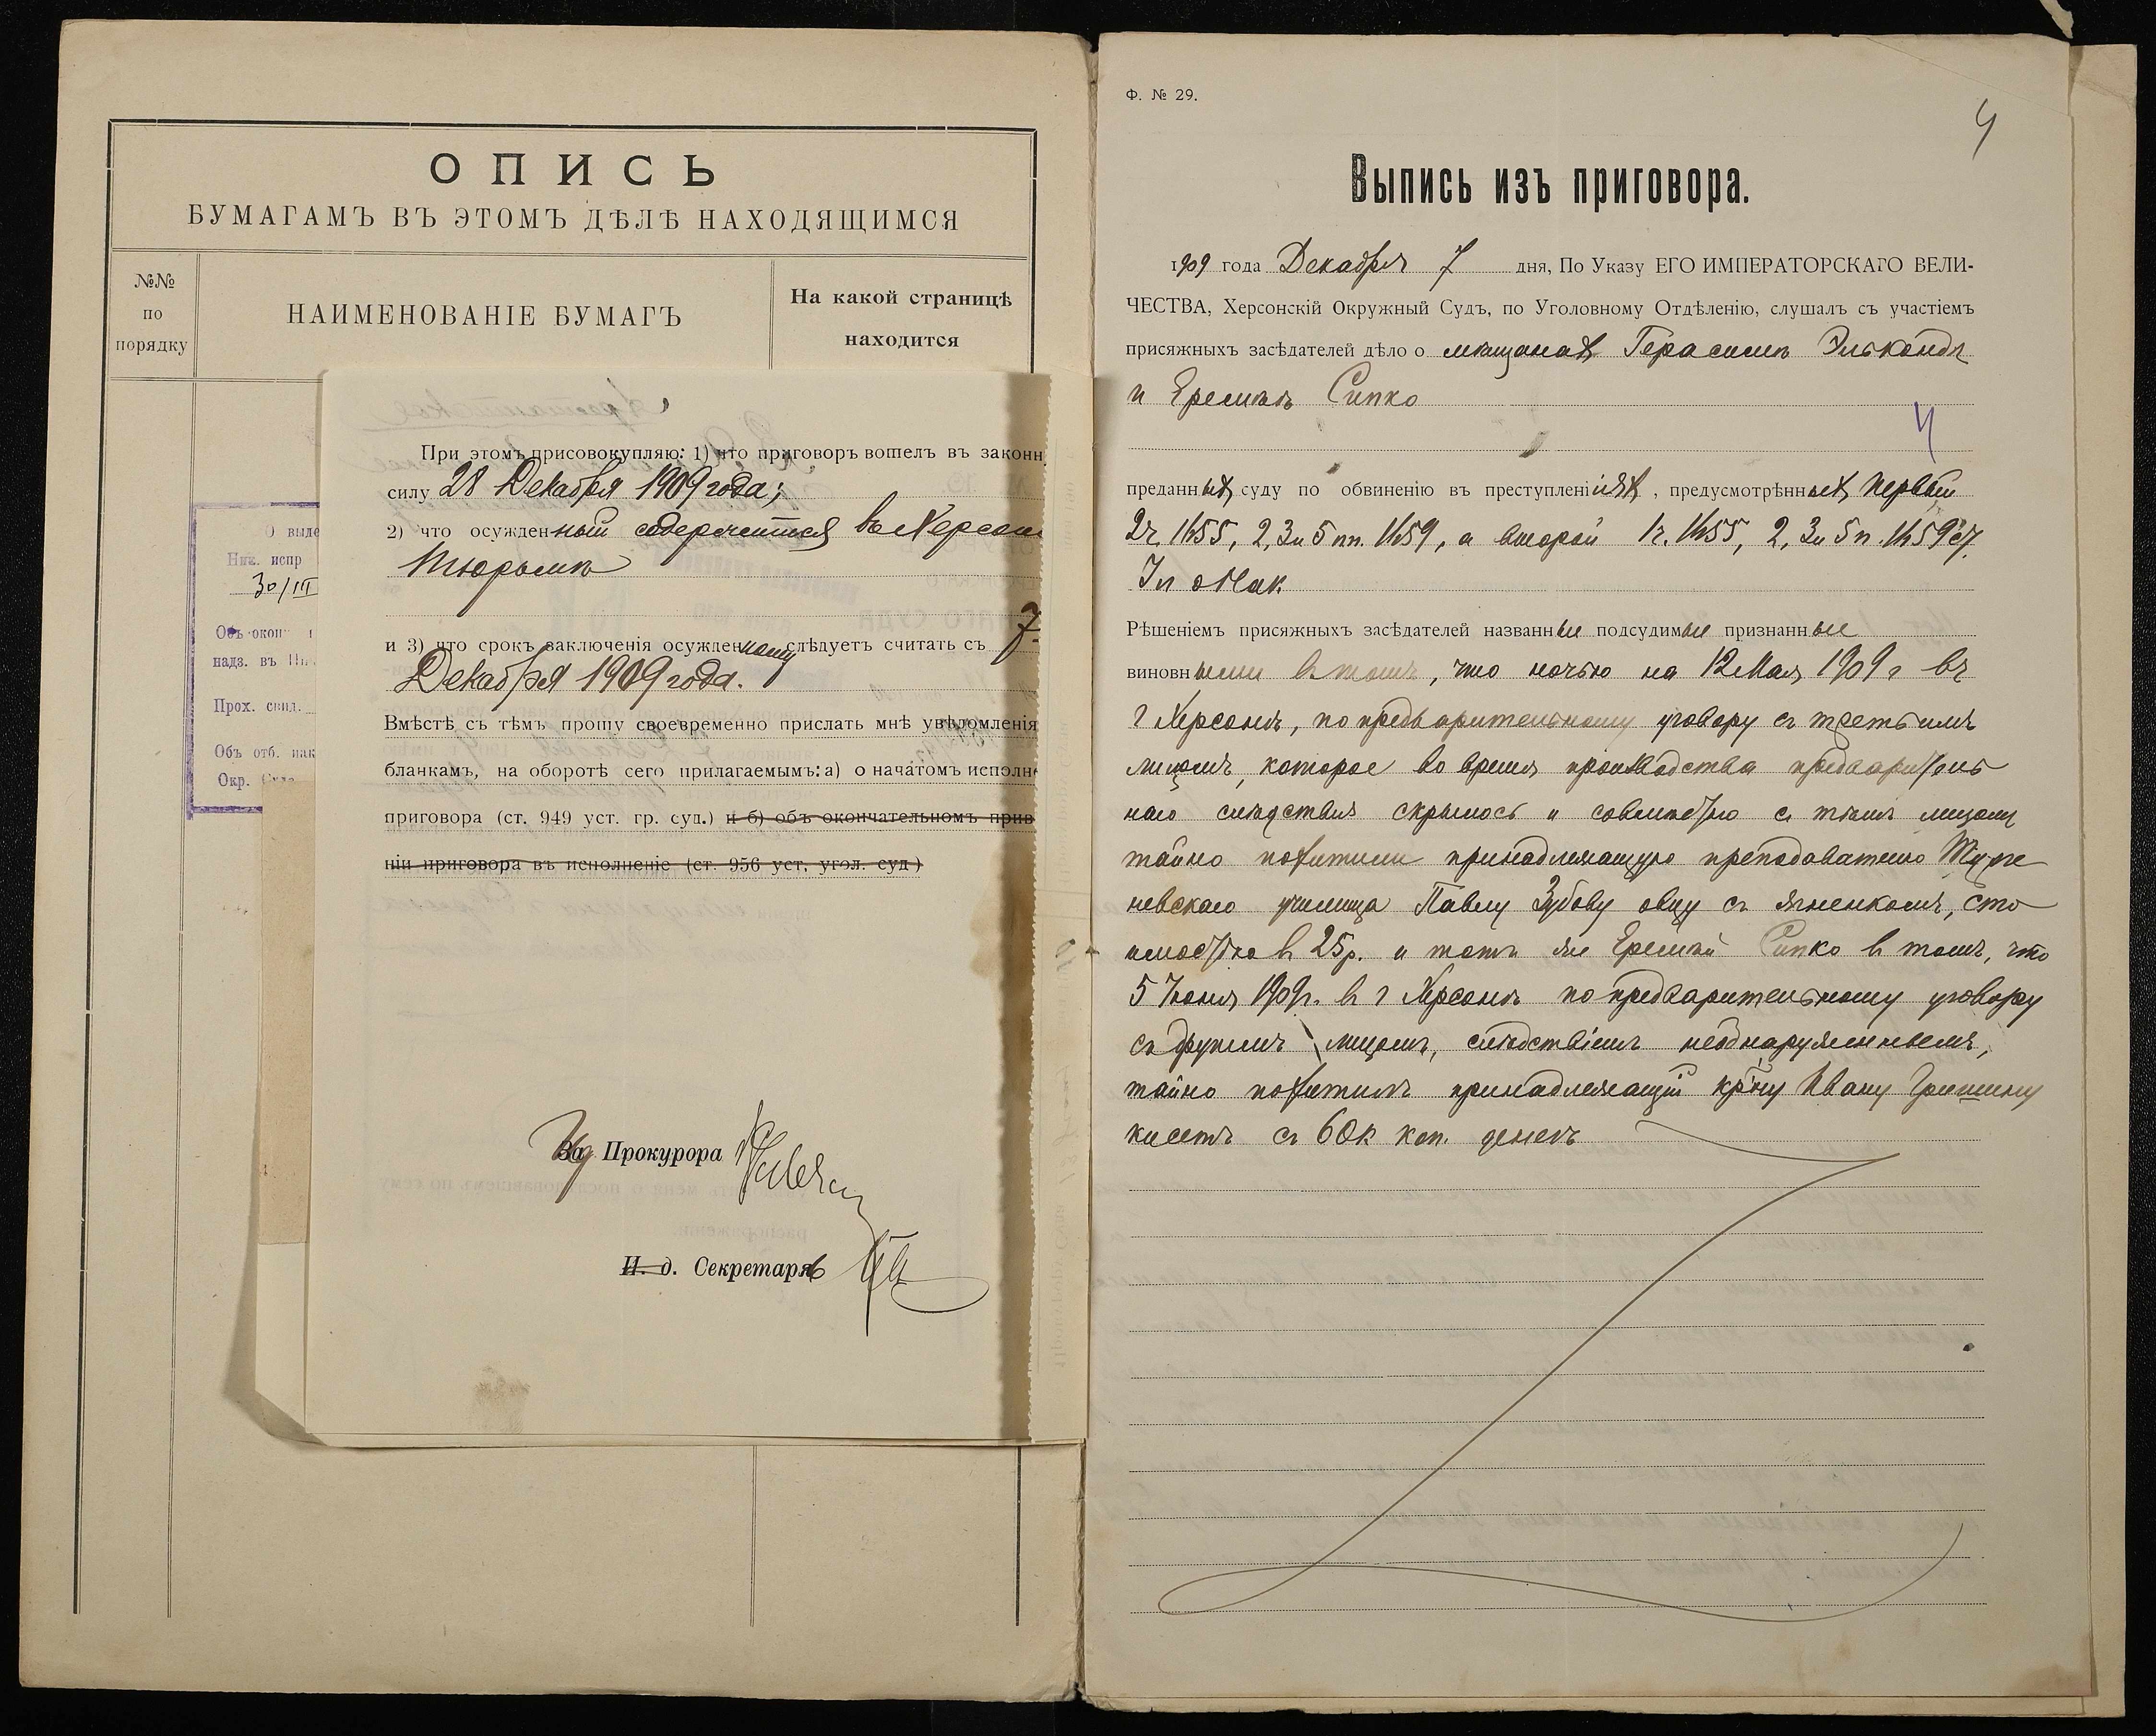 ОПИСЬ
БУМАГАМЪ ВЪ ЭТОМЪ ДѢЛѢ НАХОДЯЩИМСЯ
№№
по
порядку
НАИМЕНОВАНІЕ БУМАГЪ
На какой страницѣ
находится
О выде
Ниж. испр
30/III
Объ окон
надз. въ
Прох. свид.
Объ отб. нак
Окр.
При этомъ присовокупляю: 1) что приговоръ вошелъ въ законн
силу 28 Декабря 1909 года;
2) что осужденный содержится въ Херсон
тюрьмѣ
и 3) что срокъ заключенія осужденному слѣдуетъ считать съ 7
Декабря 1909 года.
Вмѣстѣ съ тѣмъ прошу своевременно прислать мнѣ увѣдомленія
бланкамъ, на оборотѣ сего прилагаемымъ: а) о начатомъ исполн
приговора (ст. 949 уст. гр. суд.) и б) объ окончательномъ прив
ніи приговора въ исполненіе (ст. 956 уст. угол. суд)
За Прокурора
И. д. Секретарь
Ф. № 29.
4
Выпись изъ приговора.
1909 года Декабря 7 дня, По Указу ЕГО ИМПЕРАТОРСКАГО ВЕЛИ-
ЧЕСТВА, Херсонскій Окружный Судъ, по Уголовному Отдѣленію, слушалъ съ участіемъ
присяжныхъ засѣдателей дѣло о мѣщанах Герасимѣ
и Еремѣѣ Сипко
4
преданных суду по обвиненію въ преступленіях, предусмотрѣнных первый
2 ч. 1655, 2, 3 и 5 пп. 1659, а второй 1 ч. 1655, 2, 3 и 5 п. 1659
Рѣшеніемъ присяжныхъ засѣдателей названные подсудимые признанные
виновными в томъ, что ночью на 12 Мая 1909 г въ
г Херсонѣ, по предварительному уговору съ третьимъ
лицомъ, которое во время производства предваритель
наго слѣдствія скрылось и совмѣстно с тѣмъ лицомъ
тайно похитили принадлежащую преподавателю Турге
невскаго училища Павлу Зубову овцу съ ягненкомъ, сто
имостью в 25 р. и тотъ же Еремѣй Сипко в томъ, что
5 Іюня 1909 г. в г Херсонѣ по предварительному уговору
съ другимъ лицомъ, слѣдствіемъ необнаруженнымъ,
тайно похитилъ принадлежащій кр-ну Ивану Гришину
кисетъ съ 60 к коп. денегъ